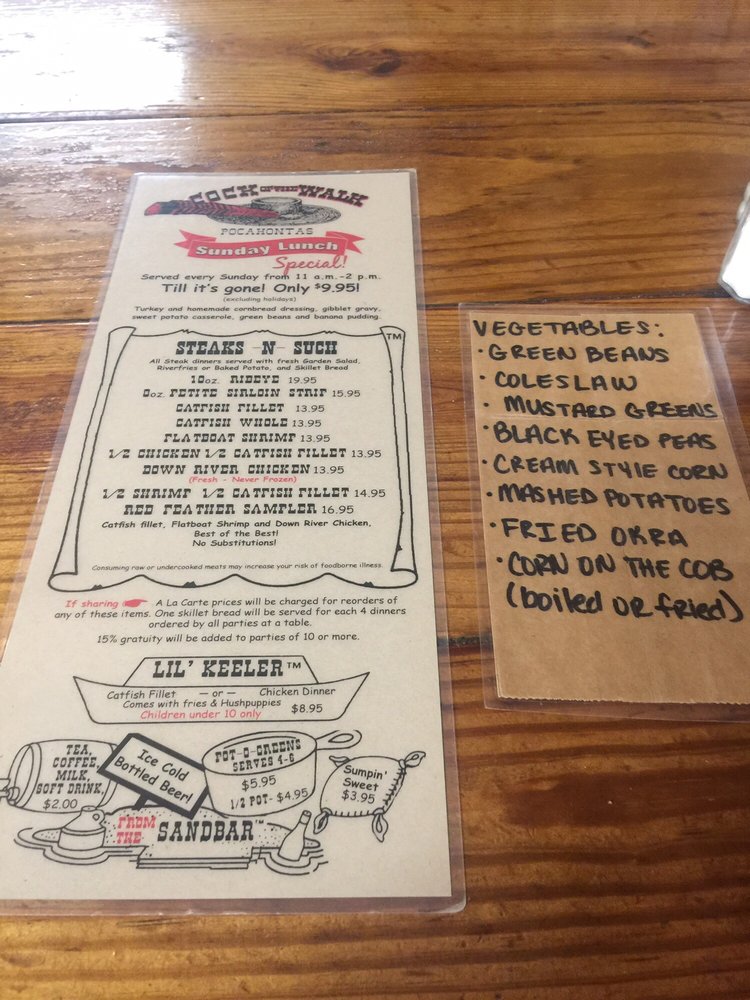 COCK OF THE WALK
POCAHONTAS
Sunday Lunch
Special!
Served every Sunday from 11 a.m.-2 p.m.
Till it's gone! Only $9.95!
(excluding holidays)
Turkey and homemade cornbread dressing, gibblet gravy,
sweet potato casserole, green beans and banana pudding.
TM
STEAKS -N- SUCH
All Steak dinners served with fresh Garden Salad,
Riverfries or Baked Potato, and Skillet Bread
10oz. RIBEYE 19.95
8oz. PETITE SIRLOIN STRIP 15.95
CATFISH FILLET 13.95
CATFISH WHOLE 13.95
FLATBOAT SHRIMP 13.95
1/2 CHICKEN 1/2 CATFISH FILLET 13.95
DOWN RIVER CHICKEN 13.95
(Fresh - Never Frozen)
1/2 SHRIMP 1/2 CATFISH FILLET 14.95
RED FEATHER SAMPLER 16.95
Catfish fillet, Flatboat Shrimp and Down River Chicken,
Best of the Best!
No Substitutions!
Consuming raw or undercooked meats may increase your risk of foodborne illness.
If sharing A La Carte prices will be charged for reorders of
any of these items. One skillet bread will be served for each 4 dinners
ordered by all parties at a table.
15% gratuity will be added to parties of 10 or more.
LIL' KEELER™
Catfish Fillet — or — Chicken Dinner
Comes with fries & Hushpuppies $8.95
Children under 10 only
TEA,
COFFEE,
MILK,
SOFT DRINK,
$2.00
Ice Cold
Bottled Beer!
POT-O-GREENS
SERVES 4-6
$5.95
1/2 POT- $4.95
Sumpin'
Sweet
$3.95
FROM
THE SANDBAR™
VEGETABLES:
• GREEN BEANS
• COLESLAW
• MUSTARD GREENS
• BLACK EYED PEAS
• CREAM STYlE CORN
• MASHED POTATOES
• FRIED OKRA
• CORN ON THE COB
(boiled OR fried)